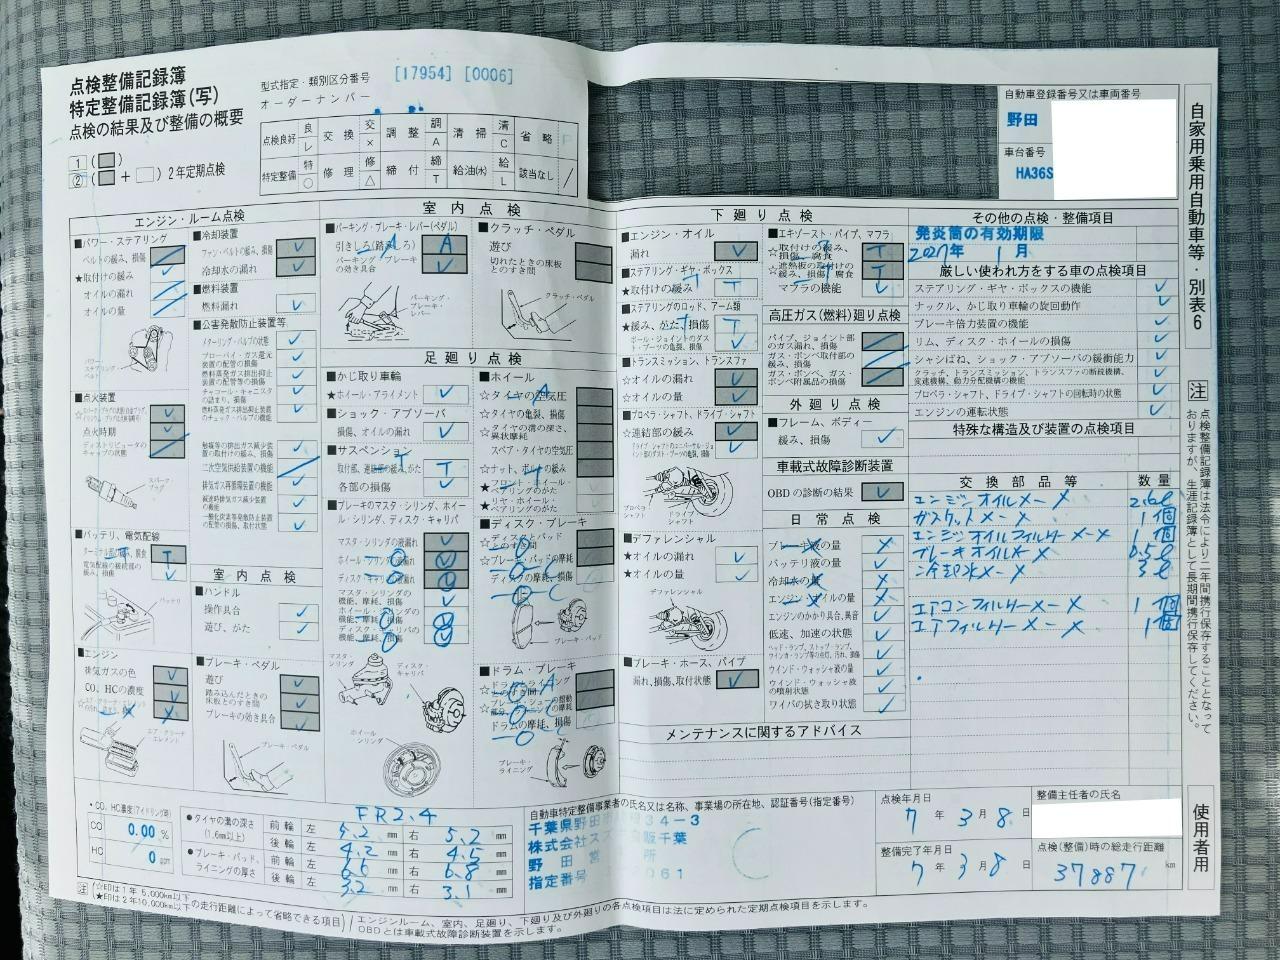 点検整備記録簿
特定整備記録簿(写)
点検の結果及び整備の概要
1 ( )
② ( + ) 2年定期点検
型式指定・類別区分番号 [17954] [0006]
オーダーナンバー
点検良好 良 レ 交換 交 × 調整 調 A 清掃 清 C 省略 P
特定整備 特 ○ 修理 修 △ 締付 締 T 給油(水) 給 L 該当なし /
自動車登録番号又は車両番号
野田
車台番号
HA36S
自家用乗用自動車等・別表6
エンジン・ルーム点検
■パワー・ステアリング
ベルトの緩み、損傷
★取付けの緩み
オイルの漏れ
オイルの量
パワーステアリングベルト
■点火装置
点火時期
ディストリビュータのキャップの状態
スパークプラグ
■バッテリ、電気配線
ターミナル部の緩み、腐食 T
電気配線の接続部の緩み、損傷
バッテリ
■エンジン
排気ガスの色
CO、HCの濃度
エア・クリーナエレメント
■冷却装置
ファン・ベルトの緩み、損傷
冷却水の漏れ
■燃料装置
燃料漏れ
■公害発散防止装置等
メターリング・バルブの状態
ブローバイ・ガス還元装置の配管の損傷
燃料蒸発ガス排出抑止装置の配管等の損傷
チャコール・キャニスタの詰まり、損傷
燃料蒸発ガス排出抑止装置のチェック・バルブの機能
触媒等の排出ガス減少装置の取付けの緩み、損傷
二次空気供給装置の機能
排気ガス再循環装置の機能
減速時排気ガス減少装置の機能
一酸化炭素等発散防止装置の配管の損傷、取付状態
室内点検
■ハンドル
操作具合
遊び、がた
■ブレーキ・ペダル
遊び
踏み込んだときの床板とのすき間
ブレーキの効き具合
ブレーキ・ペダル
室内点検
■パーキング・ブレーキ・レバー(ペダル)
引きしろ(踏みしろ) A
パーキング・ブレーキの効き具合
パーキング・ブレーキ・レバー
■クラッチ・ペダル
遊び
切れたときの床板とのすき間
クラッチ・ペダル
足廻り点検
■かじ取り車輪
★ホイール・アライメント
■ショック・アブソーバ
損傷、オイルの漏れ
■サスペンション
取付部、連結部の緩み、がた T
各部の損傷
■ブレーキのマスタ・シリンダ、ホイール・シリンダ、ディスク・キャリパ
マスタ・シリンダの液漏れ
ホイール・シリンダの液漏れ
ディスク・キャリパの液漏れ
マスタ・シリンダの機能、摩耗、損傷
ホイール・シリンダの機能、摩耗、損傷
ディスク・キャリパの機能、摩耗、損傷
マスタ・シリンダ
ディスク・キャリパ
ホイール・シリンダ
■ホイール
☆タイヤの空気圧 A
☆タイヤの亀裂、損傷
☆タイヤの溝の深さ、異状摩耗
スペア・タイヤの空気圧
☆ナット、ボルトの緩み T
★フロント・ホイール・ベアリングのがた
★リヤ・ホイール・ベアリングのがた
■ディスク・ブレーキ
☆ディスクとパッドとのすき間
☆ブレーキ・パッドの摩耗
ディスクの摩耗、損傷
ブレーキ・パッド
■ドラム・ブレーキ
☆ドラムとライニングとのすき間 A
ドラムの摩耗、損傷
ブレーキ・ライニング
下廻り点検
■エンジン・オイル
漏れ
■ステアリング・ギヤ・ボックス
★取付けの緩み T
■ステアリングのロッド、アーム類
★緩み、がた、損傷 T
ボール・ジョイントのダスト・ブーツの亀裂、損傷
■トランスミッション、トランスファ
☆オイルの漏れ
☆オイルの量
■プロペラ・シャフト、ドライブ・シャフト
☆連結部の緩み
プロペラシャフト
ドライブシャフト
■デファレンシャル
★オイルの漏れ
★オイルの量
デファレンシャル
■ブレーキ・ホース、パイプ
漏れ、損傷、取付状態
■エキゾースト・パイプ、マフラ
☆取付けの緩み、損傷、腐食 T
☆遮熱板の取付けの緩み、損傷、腐食 T
マフラの機能
高圧ガス(燃料)廻り点検
パイプ、ジョイント部のガス漏れ、損傷
ガス・ボンベ取付部の緩み、損傷
ガス・ボンベ、ガス・ボンベ附属品の損傷
外廻り点検
■フレーム、ボディー
緩み、損傷
車載式故障診断装置
OBDの診断の結果
日常点検
ブレーキ液の量 ×
バッテリ液の量
冷却水の量 ×
エンジン・オイルの量 ×
エンジンのかかり具合、異音
低速、加速の状態
ヘッド・ランプ、ストップ・ランプ、ウインカ・ランプ等の点灯、汚れ、損傷
ウインド・ウォッシャ液の量
ウインド・ウォッシャ液の噴射状態
ワイパの拭き取り状態
メンテナンスに関するアドバイス
その他の点検・整備項目
発炎筒の有効期限
2027年 1月
厳しい使われ方をする車の点検項目
ステアリング・ギヤ・ボックスの機能
ナックル、かじ取り車輪の旋回動作
ブレーキ倍力装置の機能
リム、ディスク・ホイールの損傷
シャシばね、ショック・アブソーバの緩衝能力
クラッチ、トランスミッション、トランスファの断続機構、変速機構、動力分配機構の機能
プロペラ・シャフト、ドライブ・シャフトの回転時の状態
エンジンの運転状態
特殊な構造及び装置の点検項目
交換部品等 数量
エンジンオイルメーメ 2.6ℓ
ガスケットメーメ 1個
エンジンオイルフィルターメーメ 1個
ブレーキオイルメーメ 0.5ℓ
冷却水メーメ 3ℓ
エアコンフィルターメーメ 1個
エアフィルターメーメ 1個
注 点検整備記録簿は法令により二年間携行保存することとなっておりますが、生涯記録簿として長期間携行保存してください。
使用者用
・CO、HC濃度(アイドリング時)
CO 0.00 %
HC 0 ppm
FR2.4
●タイヤの溝の深さ (1.6mm以上) 前輪 左 5.2 mm 右 5.2 mm
後輪 左 4.2 mm 右 4.5 mm
●ブレーキ・パッド、ライニングの厚さ 前輪 左 6.6 mm 右 6.8 mm
後輪 左 3.2 mm 右 3.1 mm
自動車特定整備事業者の氏名又は名称、事業場の所在地、認証番号(指定番号)
千葉県野田市 34-3
株式会社スズキ自販千葉
野田営業所
指定番号 2061
点検年月日
7年 3月 8日
整備完了年月日
7年 3月 8日
整備主任者の氏名
点検(整備)時の総走行距離
37887 km
注 (☆印は1年 5,000km以下 ★印は2年10,000km以下の走行距離によって省略できる項目) / エンジンルーム、室内、足廻り、下廻り及び外廻りの各点検項目は法に定められた定期点検項目を示します。
OBDとは車載式故障診断装置を示します。